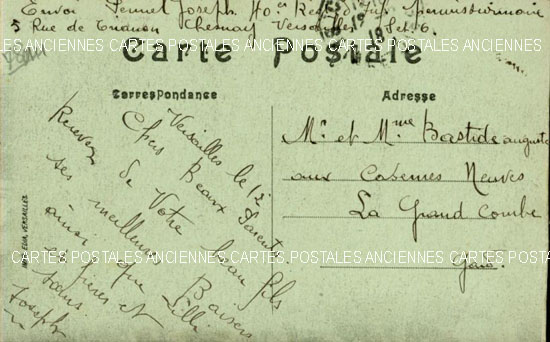 Envoi Pennet Joseph 40e
5 Rue de Chesnay Versailles
CARTES POSTALES ANCIENNES CARTES POSTALES ANCIENNES CARTES POSTALES ANCIENNES
Carte Postale
Correspondance
Adresse
Versailles le 12
Chers Beaux Parents
Recevez de Votre beau fils
ses meilleurs Baisers
ainsi que Lilli
et frères et
sœurs
Joseph
Mr et Mme Bastide auguste
aux Casernes Neuves
La Grand Combe
Gard.
CARTES POSTALES ANCIENNES CARTES POSTALES ANCIENNES CARTES POSTALES ANCIENNES
VERSAILLES